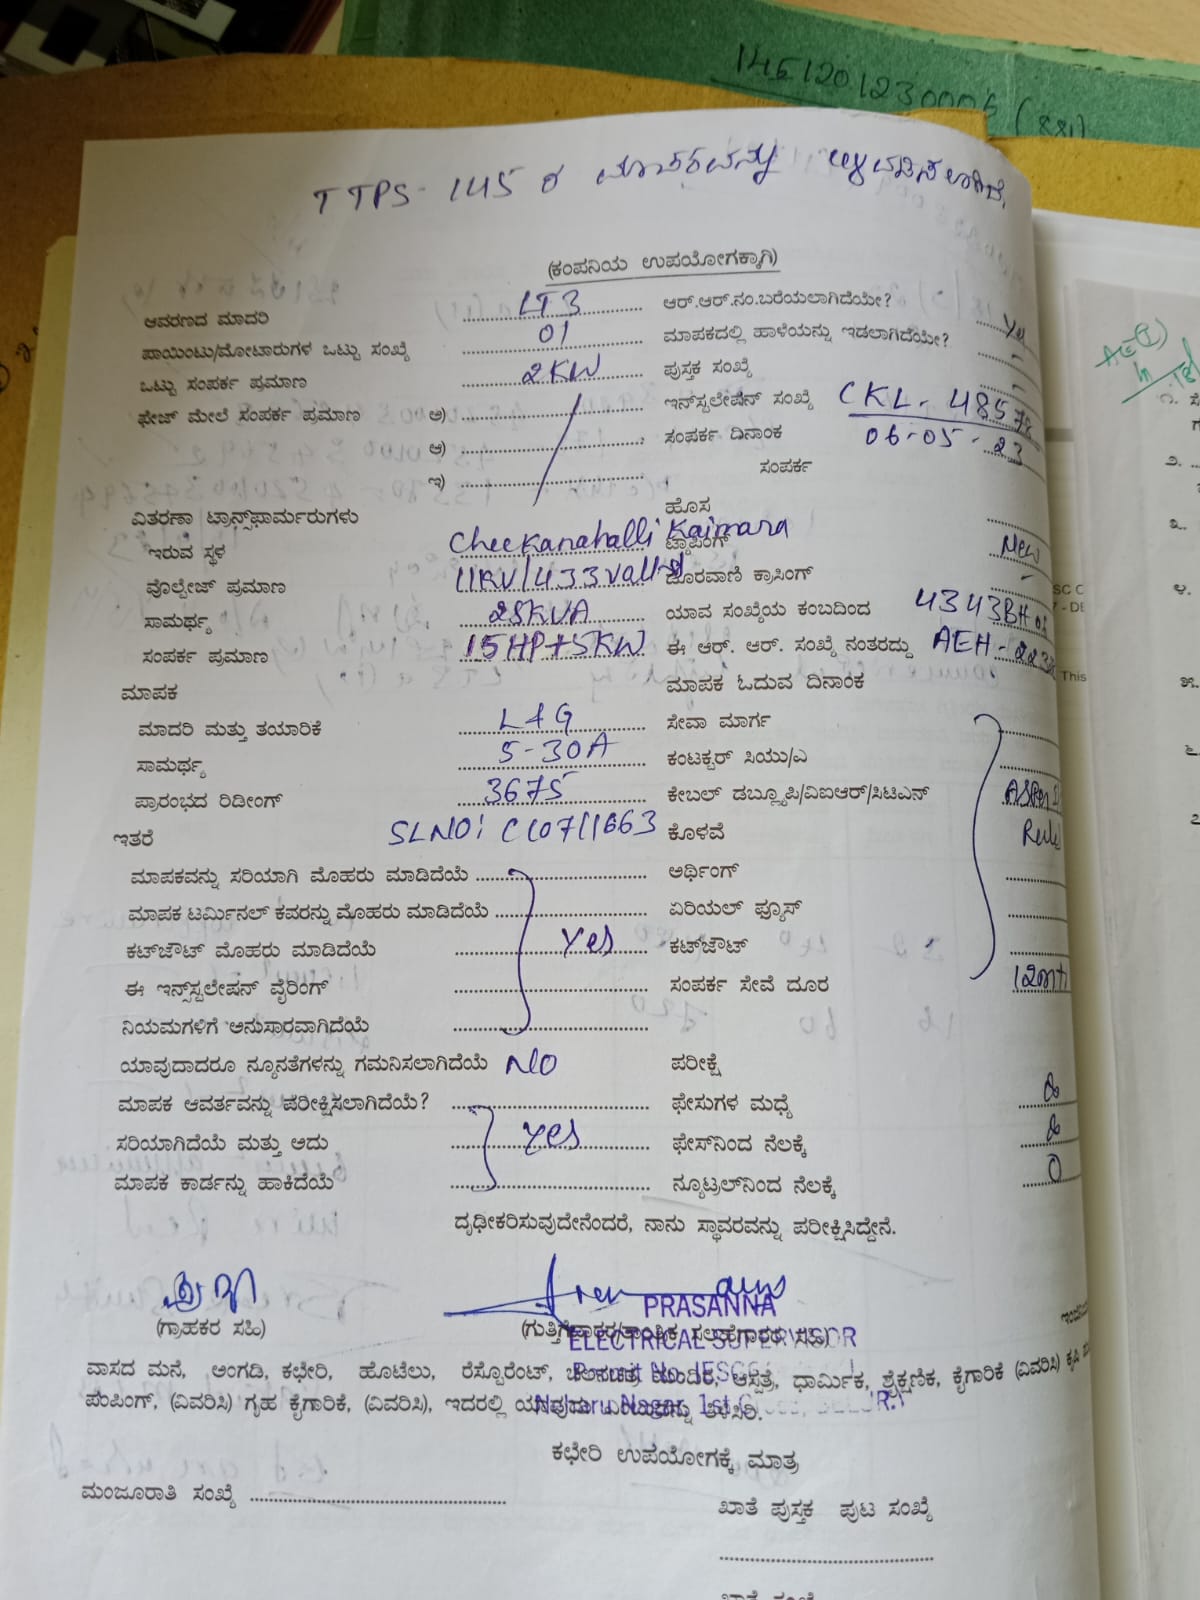 1461201230006 (881)
TTPS- 145 ರ ಮಾಪಕವನ್ನು ಅಳವಡಿಸಲಾಗಿದೆ.
(ಕಂಪನಿಯ ಉಪಯೋಗಕ್ಕಾಗಿ)
ಆವರಣದ ಮಾದರಿ LT3 ಆರ್.ಆರ್.ನಂ.ಬರೆಯಲಾಗಿದೆಯೇ? Yes
ಪಾಯಿಂಟು/ಮೋಟಾರುಗಳ ಒಟ್ಟು ಸಂಖ್ಯೆ 01 ಮಾಪಕದಲ್ಲಿ ಹಾಳೆಯನ್ನು ಇಡಲಾಗಿದೆಯೇ? -
ಒಟ್ಟು ಸಂಪರ್ಕ ಪ್ರಮಾಣ 2KW ಪುಸ್ತಕ ಸಂಖ್ಯೆ -
ಫೇಜ್ ಮೇಲೆ ಸಂಪರ್ಕ ಪ್ರಮಾಣ ಅ) ಇನ್‌ಸ್ಟಲೇಷನ್ ಸಂಖ್ಯೆ CKL- 48578
ಆ) ಸಂಪರ್ಕ ದಿನಾಂಕ 06-05-23
ಇ) ಸಂಪರ್ಕ
ವಿತರಣಾ ಟ್ರಾನ್ಸ್‌ಫಾರ್ಮರುಗಳು ಹೊಸ
ಇರುವ ಸ್ಥಳ Cheekanahalli Kaimara ಟ್ಯಾಪಿಂಗ್ New
ವೊಲ್ಟೇಜ್ ಪ್ರಮಾಣ 11KV/433 ದೂರವಾಣಿ ಕ್ರಾಸಿಂಗ್ -
ಸಾಮರ್ಥ್ಯ 25KVA ಯಾವ ಸಂಖ್ಯೆಯ ಕಂಬದಿಂದ
ಸಂಪರ್ಕ ಪ್ರಮಾಣ 15HP+5KW ಈ ಆರ್. ಆರ್. ಸಂಖ್ಯೆ ನಂತರದ್ದು AEH-
ಮಾಪಕ ಮಾಪಕ ಓದುವ ದಿನಾಂಕ
ಮಾದರಿ ಮತ್ತು ತಯಾರಿಕೆ L+G ಸೇವಾ ಮಾರ್ಗ
ಸಾಮರ್ಥ್ಯ 5-30A ಕಂಟಕ್ಟರ್ ಸಿಯು/ಎ
ಪ್ರಾರಂಭದ ರಿಡೀಂಗ್ 3675 ಕೇಬಲ್ ಡಬ್ಲ್ಯೂಪಿ/ವಿಐಆರ್/ಸಿಟಿಎನ್ ASPer
ಇತರೆ SLNO: C1071663 ಕೊಳವೆ Rule
ಮಾಪಕವನ್ನು ಸರಿಯಾಗಿ ಮೊಹರು ಮಾಡಿದೆಯೆ ಅರ್ಥಿಂಗ್
ಮಾಪಕ ಟರ್ಮಿನಲ್ ಕವರನ್ನು ಮೊಹರು ಮಾಡಿದೆಯೆ ಏರಿಯಲ್ ಫ್ಯೂಸ್
ಕಟ್‌ಜೌಟ್ ಮೊಹರು ಮಾಡಿದೆಯೆ Yes ಕಟ್‌ಜೌಟ್
ಈ ಇನ್ಸ್‌ಸ್ಟಲೇಷನ್ ವೈರಿಂಗ್ ಸಂಪರ್ಕ ಸೇವೆ ದೂರ 12mt
ನಿಯಮಗಳಿಗೆ ಅನುಸಾರವಾಗಿದೆಯೆ
ಯಾವುದಾದರೂ ನ್ಯೂನತೆಗಳನ್ನು ಗಮನಿಸಲಾಗಿದೆಯೆ NO ಪರೀಕ್ಷೆ
ಮಾಪಕ ಆವರ್ತವನ್ನು ಪರೀಕ್ಷಿಸಲಾಗಿದೆಯೆ? ಫೇಸುಗಳ ಮಧ್ಯೆ ∞
ಸರಿಯಾಗಿದೆಯೆ ಮತ್ತು ಅದು Yes ಫೇಸ್‌ನಿಂದ ನೆಲಕ್ಕೆ ∞
ಮಾಪಕ ಕಾರ್ಡನ್ನು ಹಾಕಿದೆಯೆ ನ್ಯೂಟ್ರಲ್‌ನಿಂದ ನೆಲಕ್ಕೆ 0
ದೃಢೀಕರಿಸುವುದೇನೆಂದರೆ, ನಾನು ಸ್ಥಾವರವನ್ನು ಪರೀಕ್ಷಿಸಿದ್ದೇನೆ.
PRASANNA
(ಗ್ರಾಹಕರ ಸಹಿ) (ಗುತ್ತಿಗೆದಾರರ/ತಾಂತ್ರಿಕ ಸಲಹೆಗಾರರ ಸಹಿ)
ELECTRICAL SUPERVISOR
ವಾಸದ ಮನೆ, ಅಂಗಡಿ, ಕಛೇರಿ, ಹೊಟೆಲು, ರೆಸ್ಟೊರೆಂಟ್, ಚಲನಚಿತ್ರ ಮಂದಿರ, ಆಸ್ಪತ್ರೆ, ಧಾರ್ಮಿಕ, ಶೈಕ್ಷಣಿಕ, ಕೈಗಾರಿಕೆ (ವಿವರಿಸಿ) ಕೃಷಿ
ಪಂಪಿಂಗ್, (ವಿವರಿಸಿ) ಗೃಹ ಕೈಗಾರಿಕೆ, (ವಿವರಿಸಿ), ಇದರಲ್ಲಿ ತಿಳಿಸಿರಿ.
ಕಛೇರಿ ಉಪಯೋಗಕ್ಕೆ ಮಾತ್ರ
ಮಂಜೂರಾತಿ ಸಂಖ್ಯೆ
ಖಾತೆ ಪುಸ್ತಕ ಪುಟ ಸಂಖ್ಯೆ